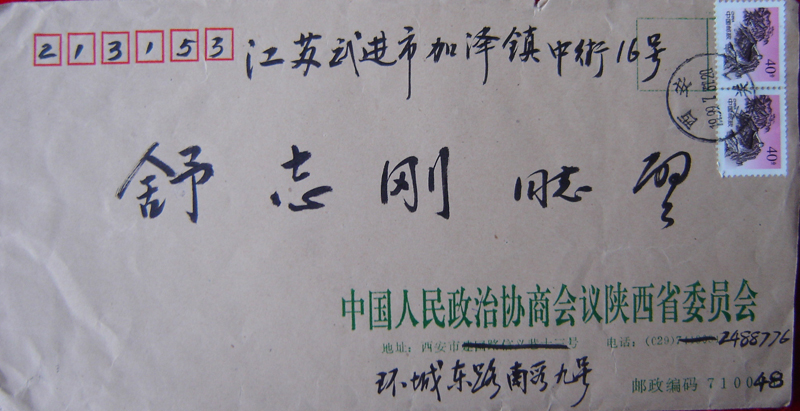 213153
江苏武进市加泽镇中街16号
40分
西安
1999.1.
40分
舒志刚 同志
中国人民政治协商会议陕西省委员会
地址: 西安市 号 电话: (029) 2488776
环城东路南段九号
邮政编码 710048